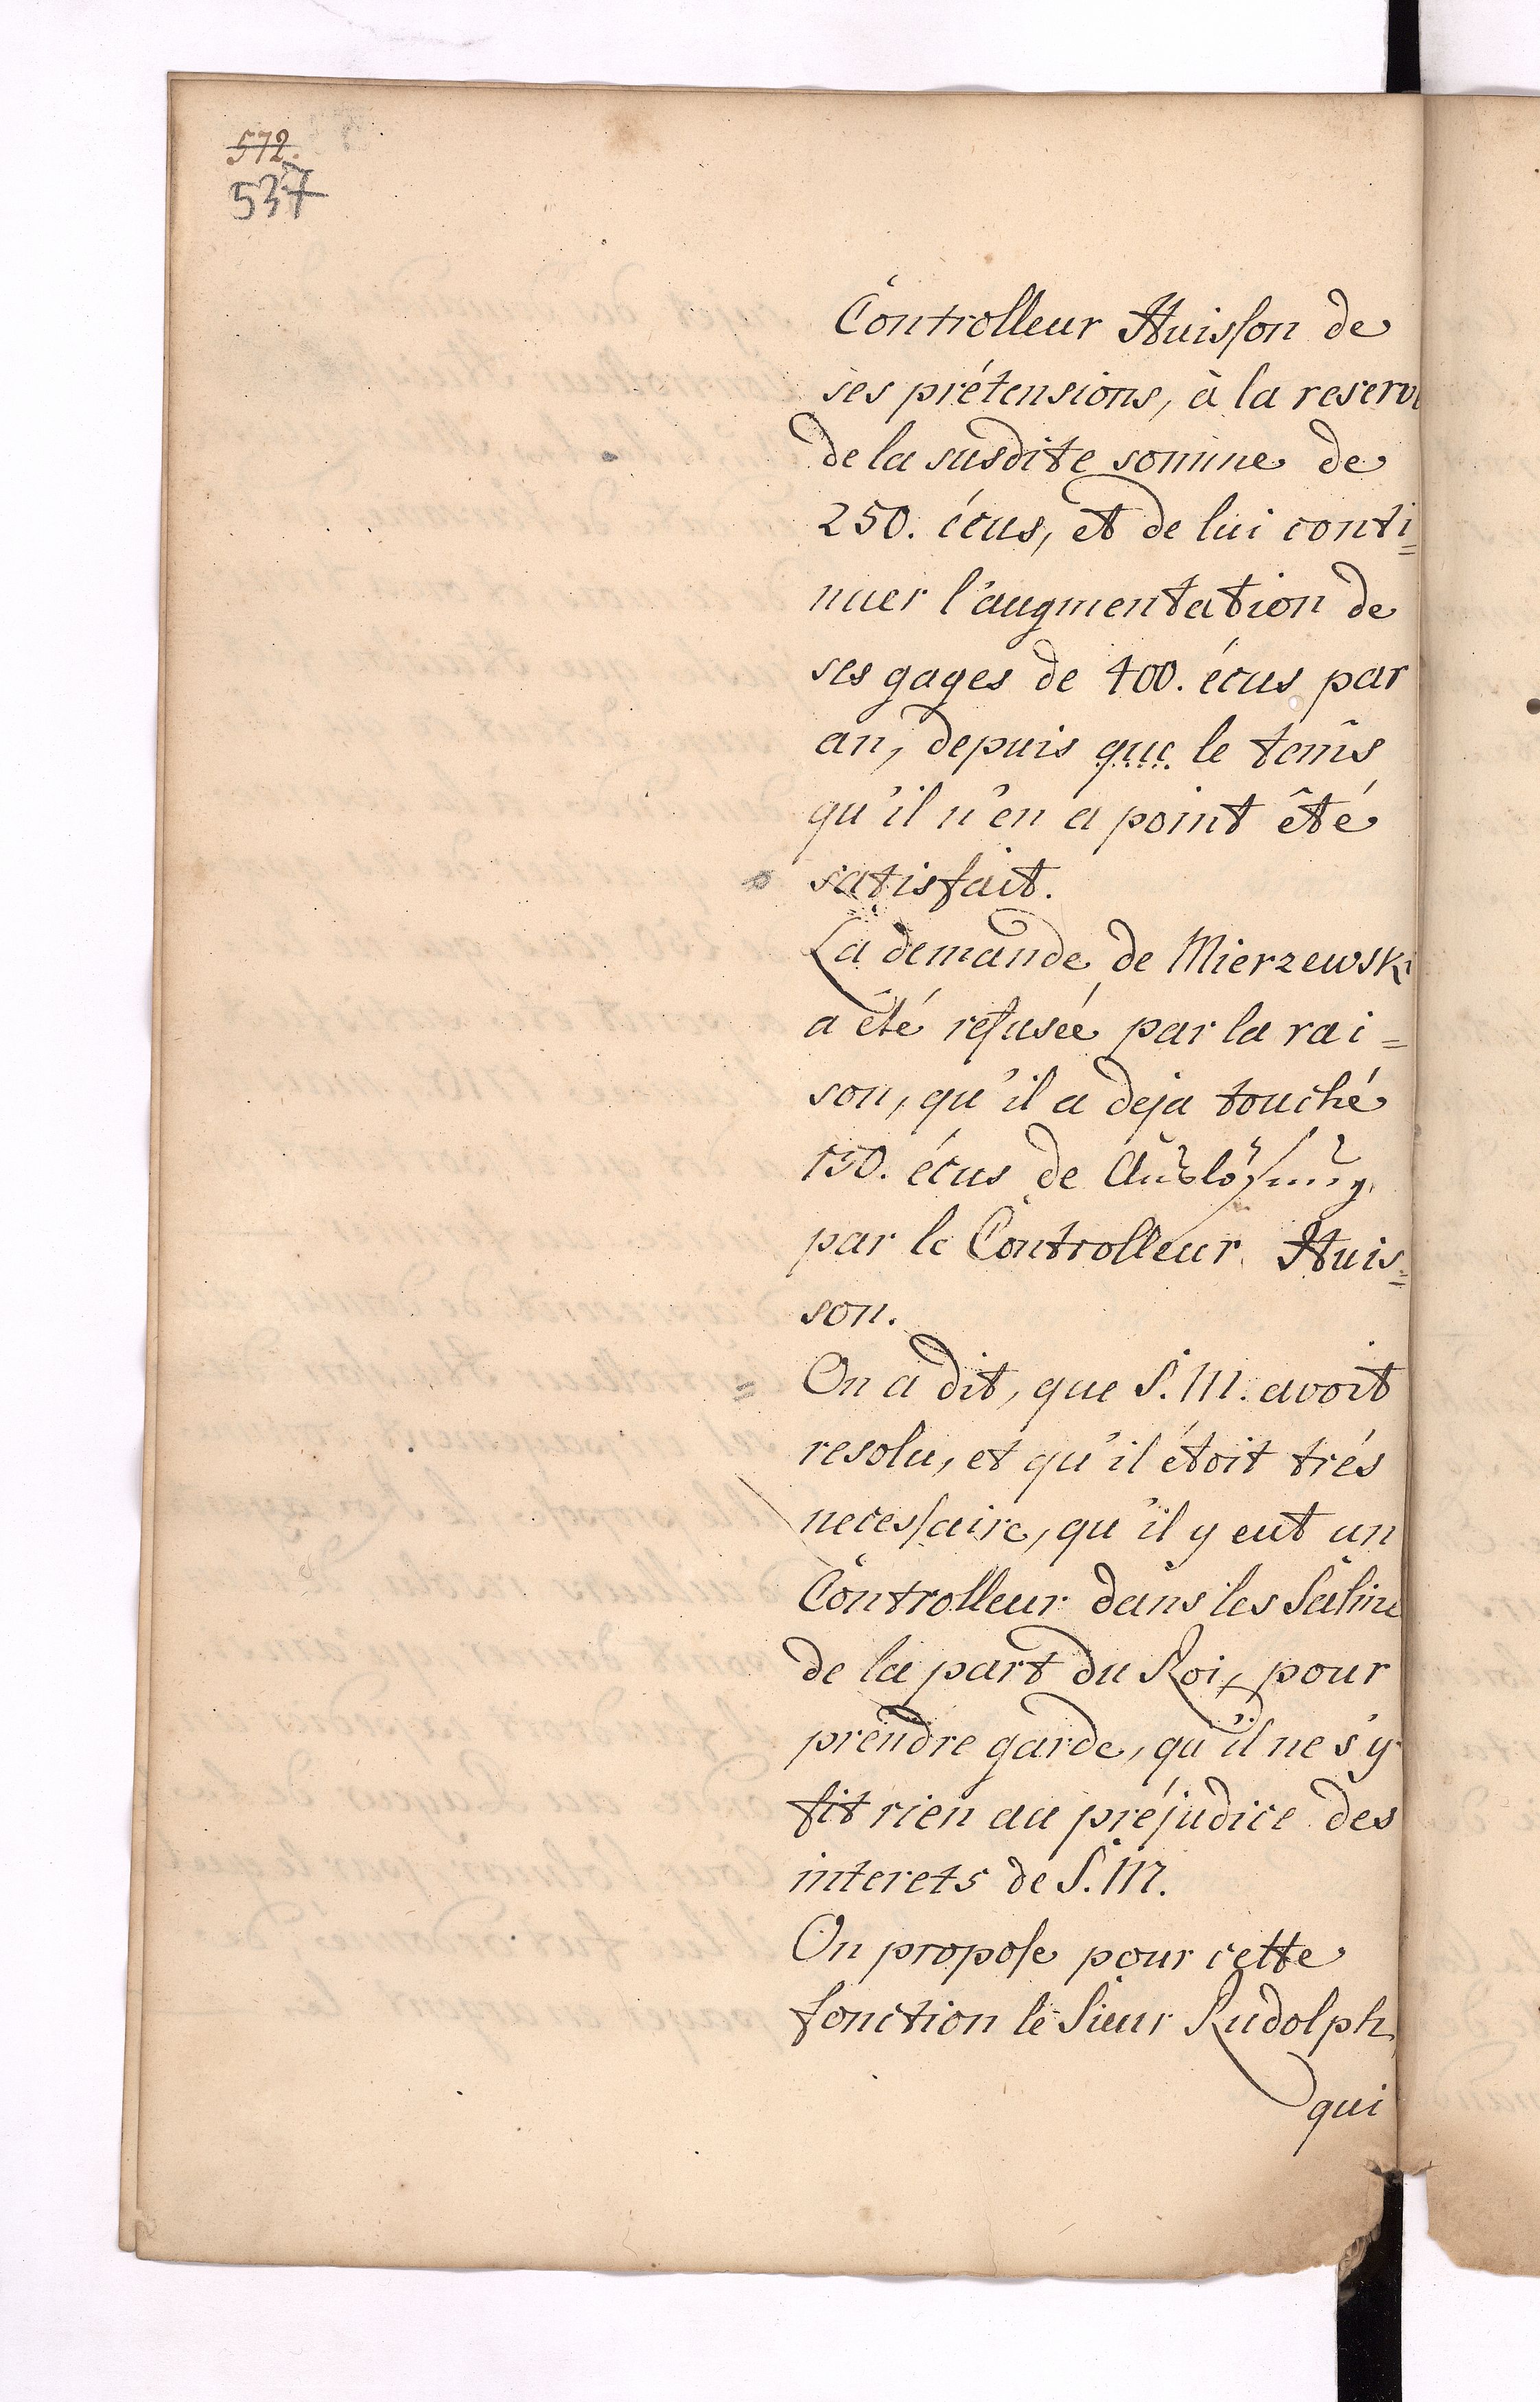 572.
537
Controlleur Huisson de
ses prétensions, à la reserve
de la susdite somme de
250. écus, et de lui conti=
nuer l'augmentation de
ses gages de 400. écus par
an, depuis que le tem̃s
qu'il n'en a point êté
satisfait.
La demande de Mierzewski
a êté refusée par la rai=
son, qu'il a deja touché
150. écus de Auslösung
par le Controlleur Huis=
son.
= On a dit, que S. M. avoit
resolu, et qu'il étoit trés
necessaire, qu'il y eut un
Controlleur dans les Saline
de la part du Roi, pour
prendre garde, qu'il ne s'y
fit rien au préjudice des
interets de S. M.
On propose pour cette
fonction le Sieur Rudolph,
qui